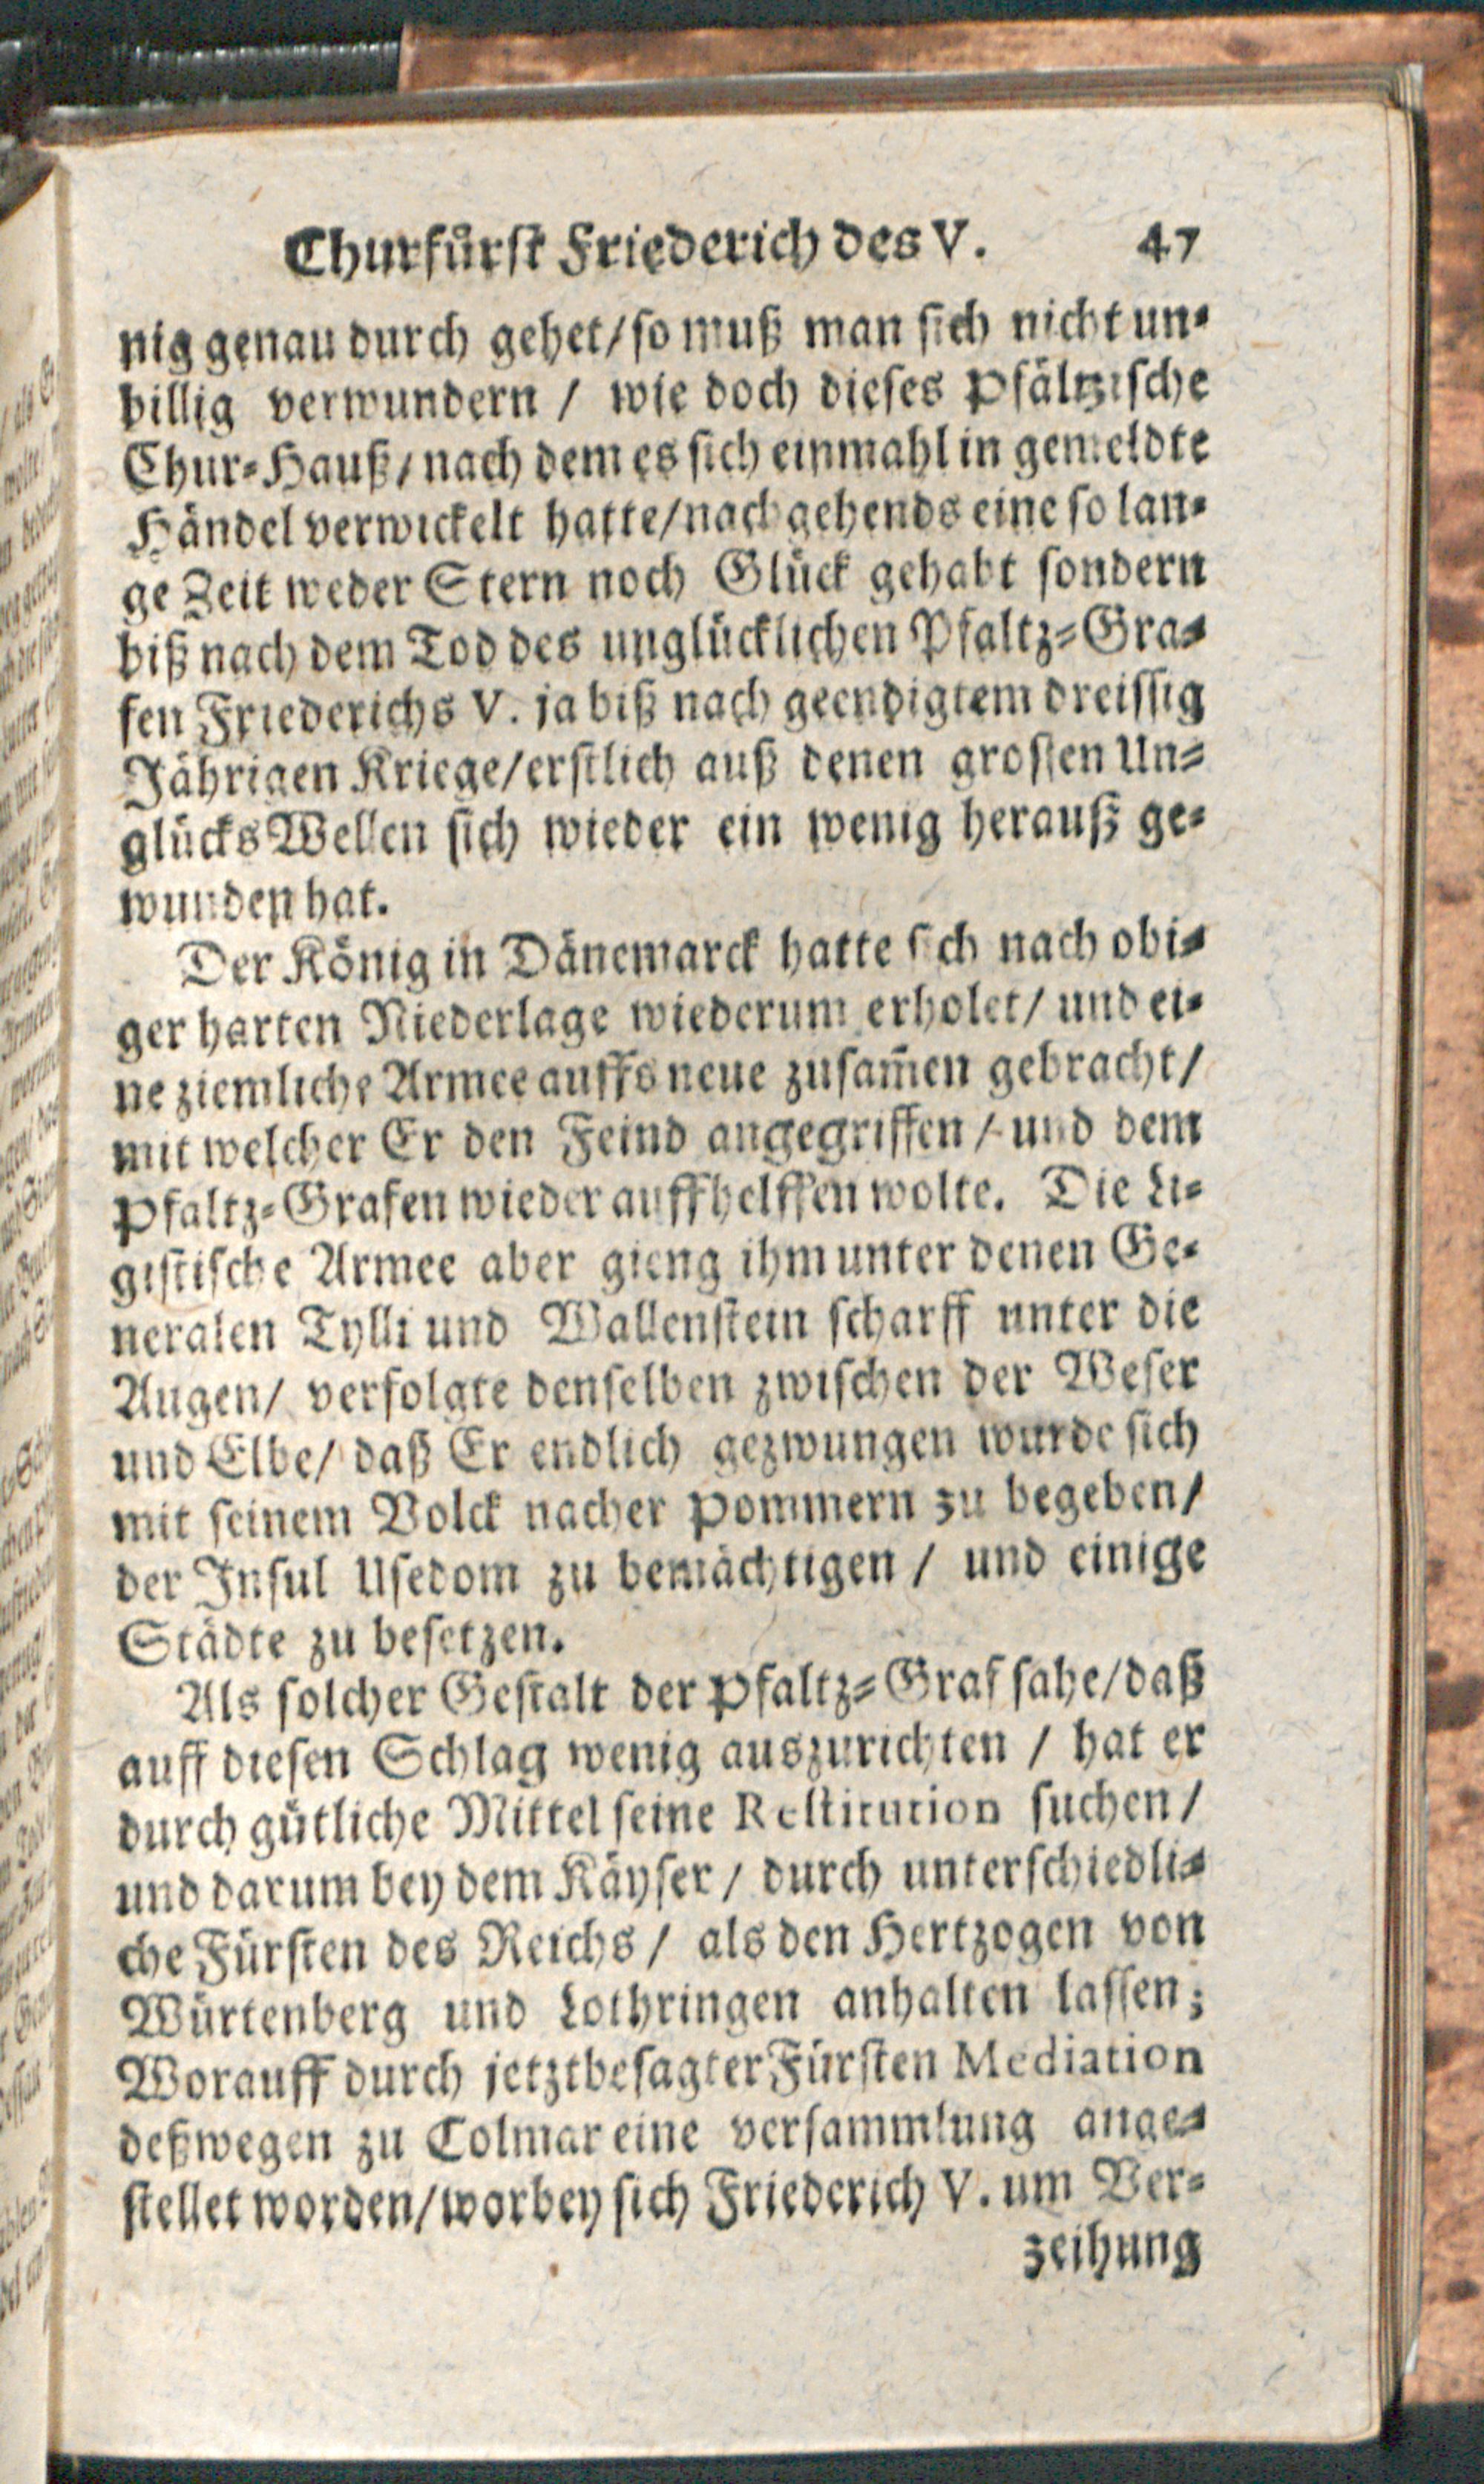 Churfürst Friederich des V. 47
nig genau durch gehet/ so muß man sich nicht un-
billig verwundern / wie doch dieses Pfältzische
Chur-Hauß/ nach dem es sich einmahl in gemeldte
Händel verwickelt hatte/ nachgehends eine so lan-
ge Zeit weder Stern noch Glück gehabt sondern
biß nach dem Tod des unglücklichen Pfaltz-Gra-
fen Friederichs V. ja biß nach geendigtem dreissig
Jährigen Kriege/ erstlich auß denen grossen Un-
glücks Wellen sich wieder ein wenig herauß ge-
wunden hat.
Der König in Dänemarck hatte sich nach obi-
ger harten Niederlage wiederum erholet/ und ei-
ne ziemliche Armee auffs neue zusam̃en gebracht/
mit welcher Er den Feind angegriffen / und dem
Pfaltz-Grafen wieder auffhelffen wolte. Die Li-
gistische Armee aber gieng ihm unter denen Ge-
neralen Tylli und Wallenstein scharff unter die
Augen/ verfolgte denselben zwischen der Weser
und Elbe/ daß Er endlich gezwungen wurde sich
mit seinem Volck nacher Pommern zu begeben/
der Insul Usedom zu bemächtigen / und einige
Städte zu besetzen.
Als solcher Gestalt der Pfaltz-Graf sahe/ daß
auff diesen Schlag wenig auszurichten / hat er
durch gütliche Mittel seine Restitution suchen /
und darum bey dem Käyser / durch unterschiedli-
che Fürsten des Reichs / als den Hertzogen von
Würtenberg und Lothringen anhalten lassen;
Worauff durch jetztbesagter Fürsten Mediation
deßwegen zu Colmar eine versammlung ange-
stellet worden/ worbey sich Friederich V. um Ver-
zeihung